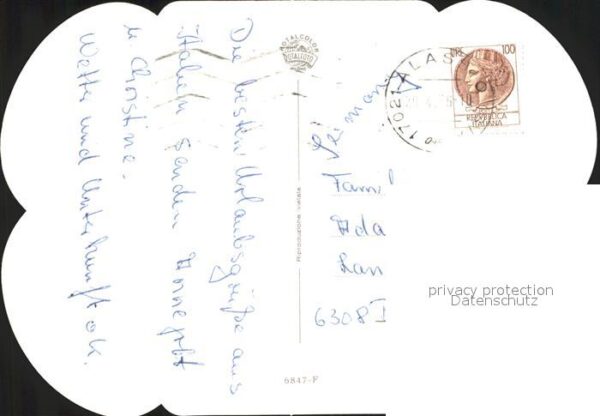 Die besten Urlaubsgrüße aus
Italien senden
u. Christine.
Wetter und Unterkunft ok.
ROTALCOLOR
ROTALFOTO
Riproduzione vietata
6847-F
17021 ALAS
100
REPUBBLICA
ITALIANA
Fam
Lan
6308
privacy protection
Datenschutz